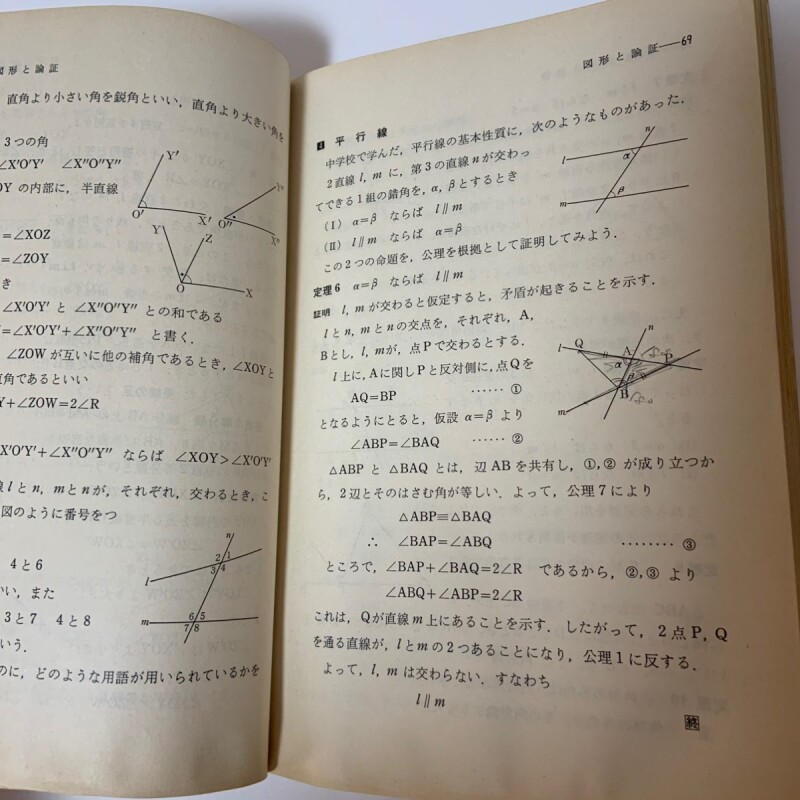 図形と論証
直角より小さい角を鋭角といい，直角より大きい角を
3つの角
∠X′O′Y′ ∠X″O″Y″
OY の内部に，半直線
=∠XOZ
=∠ZOY
き
∠X′O′Y′ と ∠X″O″Y″ との和である
=∠X′O′Y′+∠X″O″Y″ と書く．
∠ZOW が互いに他の補角であるとき，∠XOYと
直角であるといい
Y+∠ZOW=2∠R
X′O′Y′+∠X″O″Y″ ならば ∠XOY>∠X′O′Y′
線lとn，mとnが，それぞれ，交わるとき，こ
図のように番号をつ
4と6
いい，また
3と7 4と8
いう．
のに，どのような用語が用いられているかを
Y′
O′
X′
Y″
O″
X″
Y
Z
O
X
n
l
2 1
3 4
m
6 5
7 8
図形と論証——69
平行線
中学校で学んだ，平行線の基本性質に，次のようなものがあった．
2直線 l, m に，第3の直線 n が交わっ
てできる1組の錯角を，α, β とするとき
(I) α=β ならば l∥m
(II) l∥m ならば α=β
この2つの命題を，公理を根拠として証明してみよう．
定理6 α=β ならば l∥m
証明 l, m が交わると仮定すると，矛盾が起きることを示す．
l と n, m と n の交点を，それぞれ，A,
B とし，l, m が，点Pで交わるとする．
l 上に，A に関し P と反対側に，点Q を
AQ=BP …… ①
となるようにとると，仮設 α=β より
∠ABP=∠BAQ …… ②
△ABP と △BAQ とは，辺 AB を共有し，①,② が成り立つか
ら，2辺とそのはさむ角が等しい．よって，公理7により
△ABP≡△BAQ
∴ ∠BAP=∠ABQ ……… ③
ところで，∠BAP+∠BAQ=2∠R であるから，②,③ より
∠ABQ+∠ABP=2∠R
これは，Qが直線 m 上にあることを示す．したがって，2点 P, Q
を通る直線が，l と m の2つあることになり，公理1に反する．
よって，l, m は交わらない．すなわち
l∥m
終
n
l
α
m
β
n
Q
l
A
α
P
β
B
m